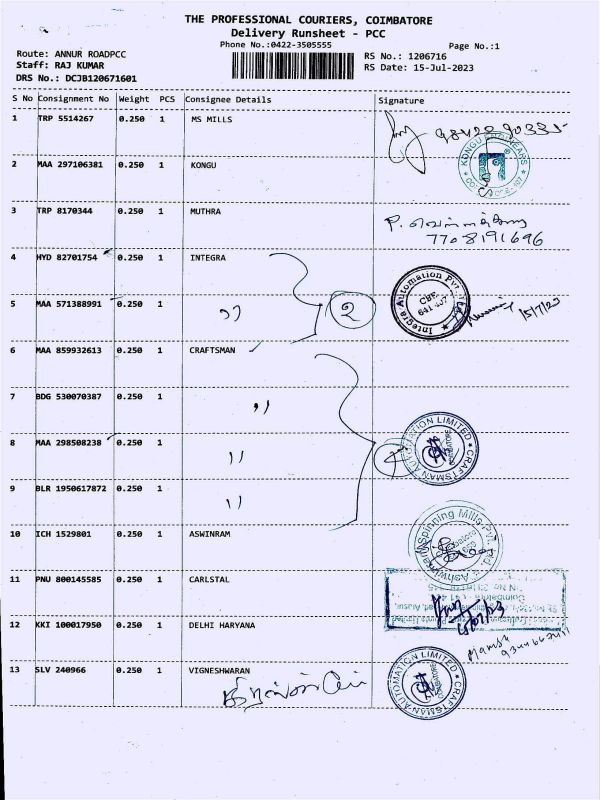 THE PROFESSIONAL COURIERS, COIMBATORE
Delivery Runsheet - PCC
Phone No.:0422-3505555
Page No.:1
Route: ANNUR ROADPCC
RS No.: 1206716
Staff: RAJ KUMAR
RS Date: 15-Jul-2023
DRS No.: DCJB120671601
S No Consignment No Weight PCS Consignee Details Signature
1 TRP 5514267 0.250 1 MS MILLS
2 MAA 297106381 0.250 1 KONGU
3 TRP 8170344 0.250 1 MUTHRA
7708191696
4 HYD 82701754 0.250 1 INTEGRA
Integra Automation Pvt Ltd
CBE
641 407
5 MAA 571388991 0.250 1 ,, 2
15/7/23
6 MAA 859932613 0.250 1 CRAFTSMAN
7 BDG 530070387 0.250 1 ,,
8 MAA 298508238 0.250 1 ,,
CRAFTSMAN AUTOMATION LIMITED
9 BLR 1950617872 0.250 1 ,,
10 ICH 1529801 0.250 1 ASWINRAM
Spinning Mills Pvt. Ltd.
11 PNU 800145585 0.250 1 CARLSTAL
12 KKI 100017950 0.250 1 DELHI HARYANA
13 SLV 240966 0.250 1 VIGNESHWARAN
CRAFTSMAN AUTOMATION LIMITED